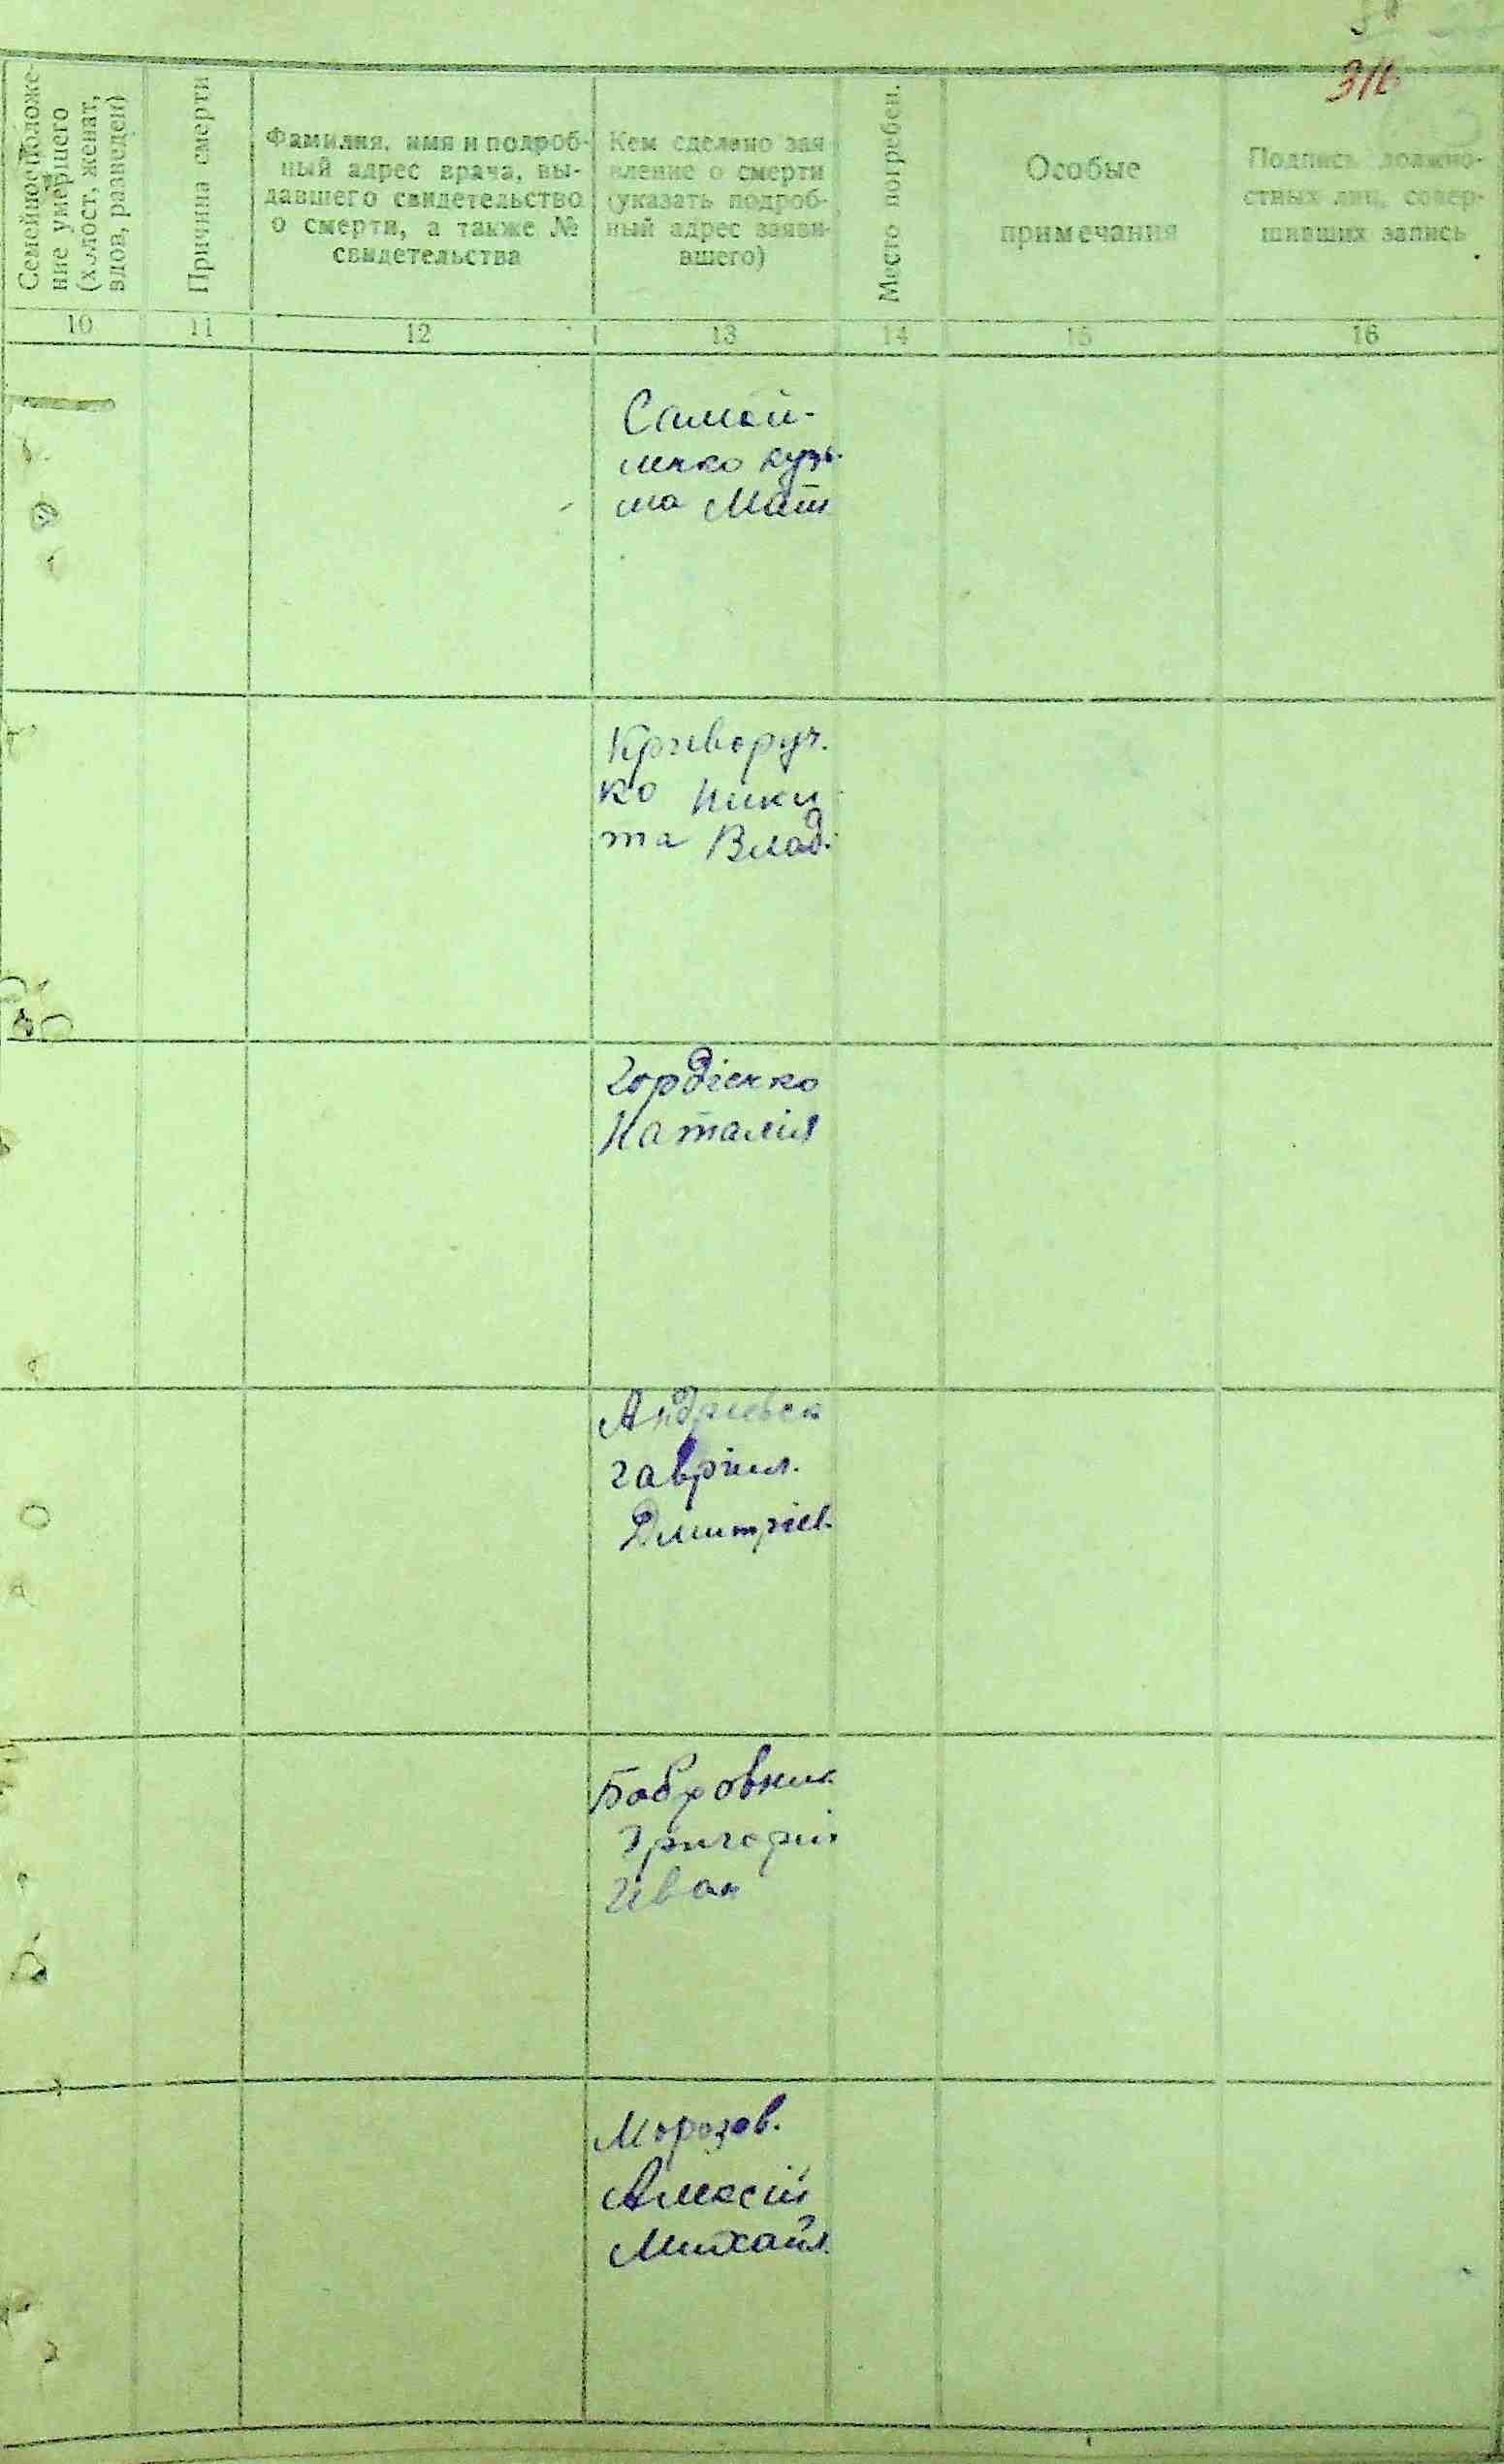 316
Семейное положе-
ние умершего
(холост, женат,
вдов, разведен)
Причина смерти
Фамилия, имя и подроб-
ный адрес врача, вы-
давшего свидетельство
о смерти, а также №
свидетельства
Кем сделано зая
вление о смерти
(указать подроб-
ный адрес заяви-
вшего)
Место погребен.
Особые
примечания
Подпись должно-
стных лиц, совер-
шивших запись
10 11 12 13 14 15 16
Самой-
ленко Кузь-
ма Мат
Криворуч.
ко Ники
та Влад.
Гордіенко
Наталія
Андриевск
Гавріил.
Дмитріев.
Бобровник
Григорій
Иван
Морозов.
Алексій
Михайл.